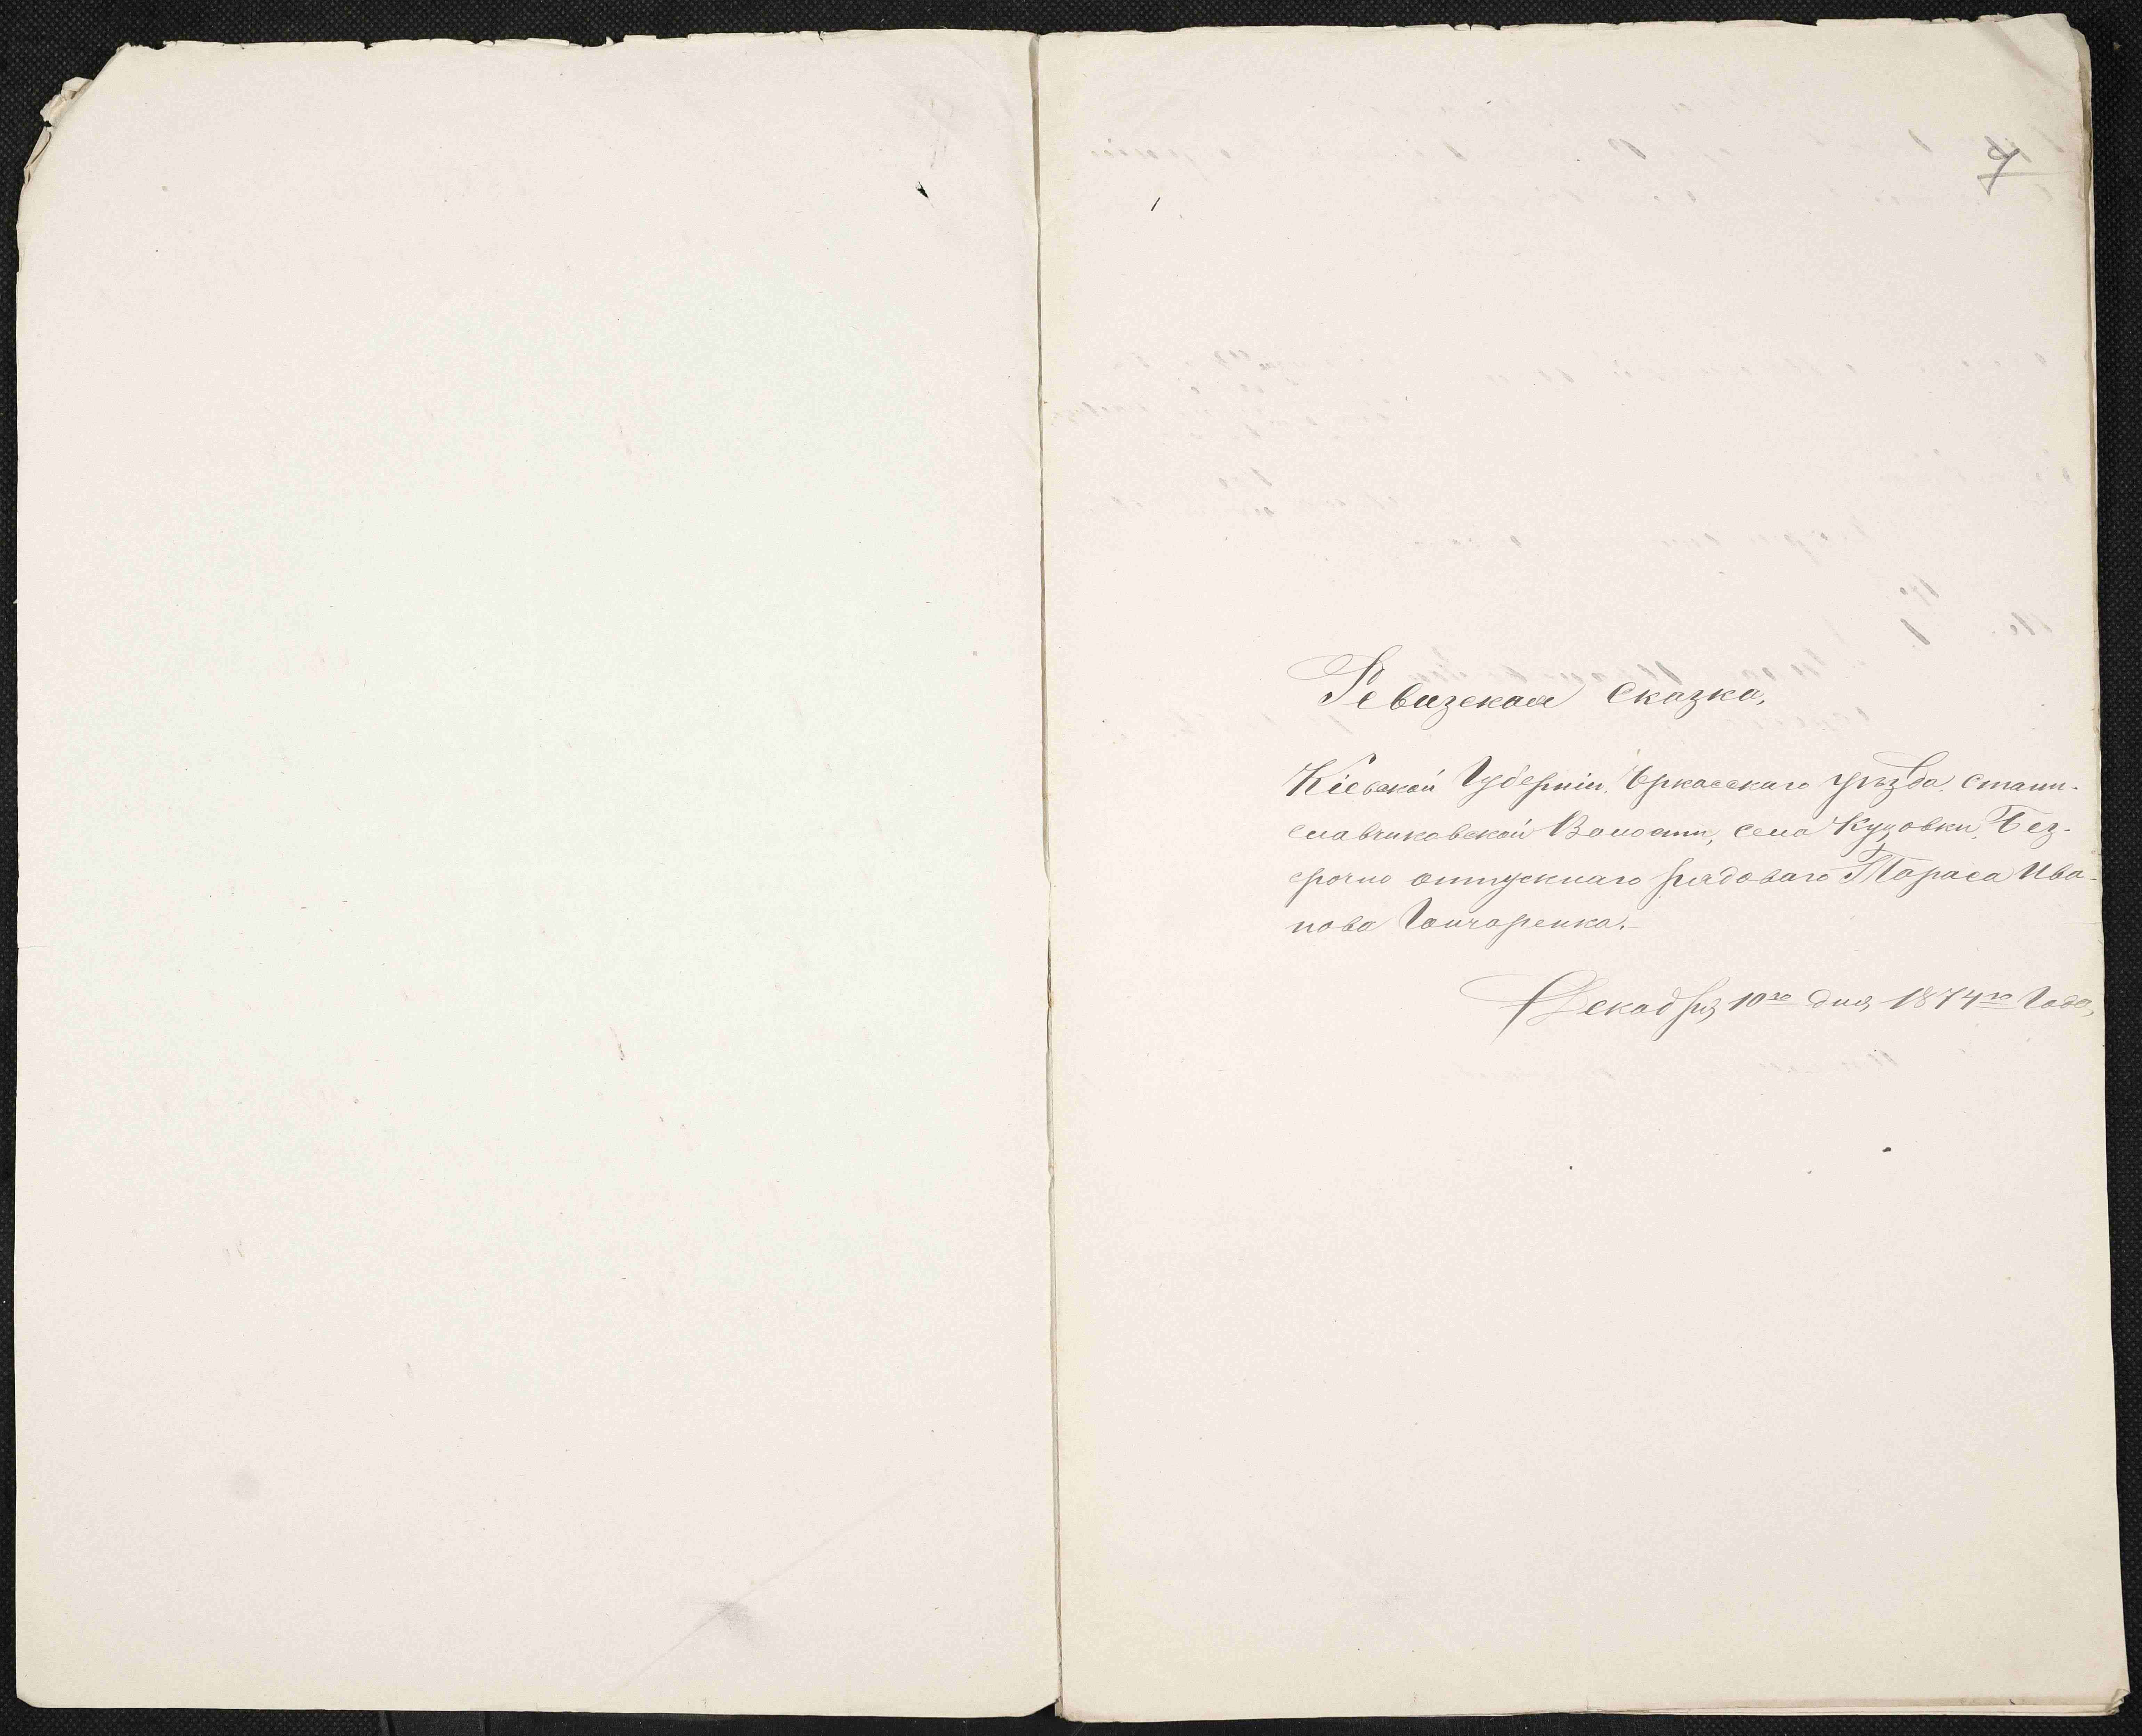 4
Ревизская Сказка,
Кіевской Губерніи, Черкасскаго уѣзда, Стани-
славчиковской Волости, села Кузовки, Без-
срочно отпускнаго рядоваго Тараса Ива-
нова Гончаренка.
Декабря 10го дня 1874го Года,